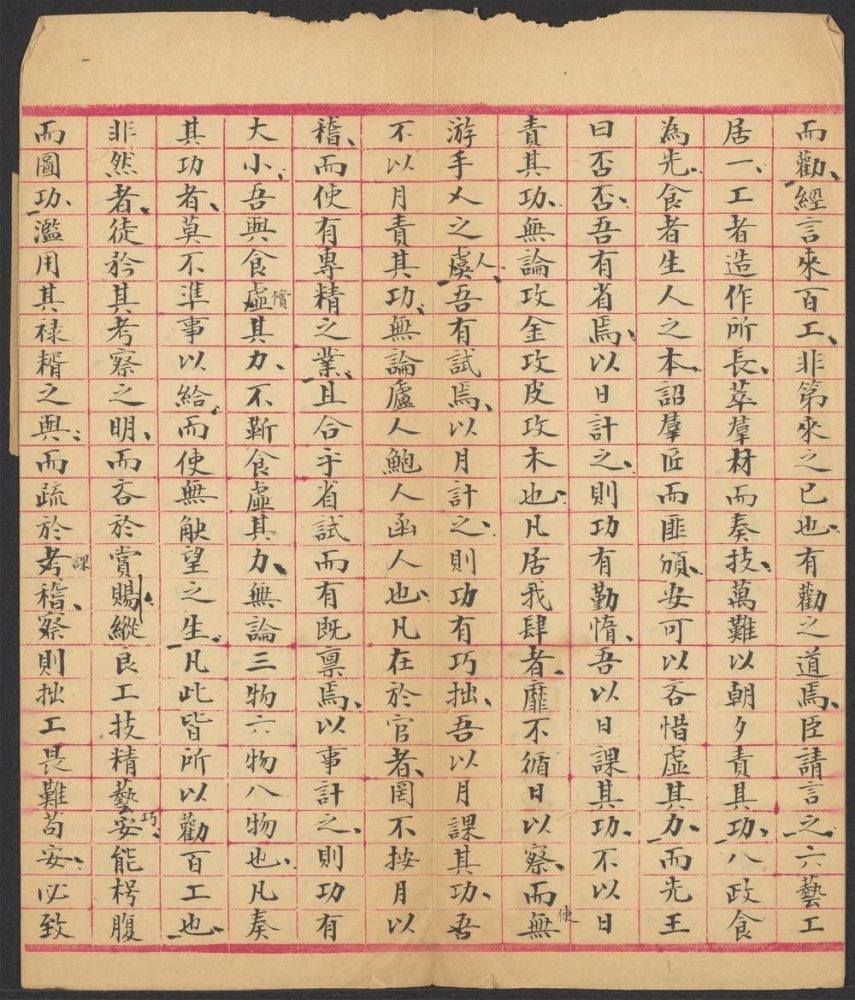 而勸、經言來百工、非第來之已也、有勸之道焉、臣請言之、六藝工
居一、工者造作所長、萃羣材而奏技、萬難以朝夕責其功、八政食
為先、食者生人之本、詔羣匠而匪頒、安可以吝惜虛其力、而先王
曰否否、吾有省焉、以日計之、則功有勤惰、吾以日課其功、不以日
責其功、無論攻金攻皮攻木也、凡居我肆者、靡不循日以察、而使無
游手人之虞人、吾有試焉、以月計之、則功有巧拙、吾以月課其功、吾
不以月責其功、無論廬人鮑人函人也、凡在於官者、罔不按月以
稽、而使有專精之業、且合乎省試而有既稟焉、以事計之、則功有
大小、吾與食虛償其力、不靳食虛其力、無論三物六物八物也、凡奏
其功者、莫不準事以給、而使無觖望之生、凡此皆所以勸百工也、
非然者、徒矜其考察之明、而吝於賞賜、縱良工技精藝巧、安能枵腹
而圖功、濫用其祿糈之與、而疏於考課稽、察則拙工畏難苟安、必致